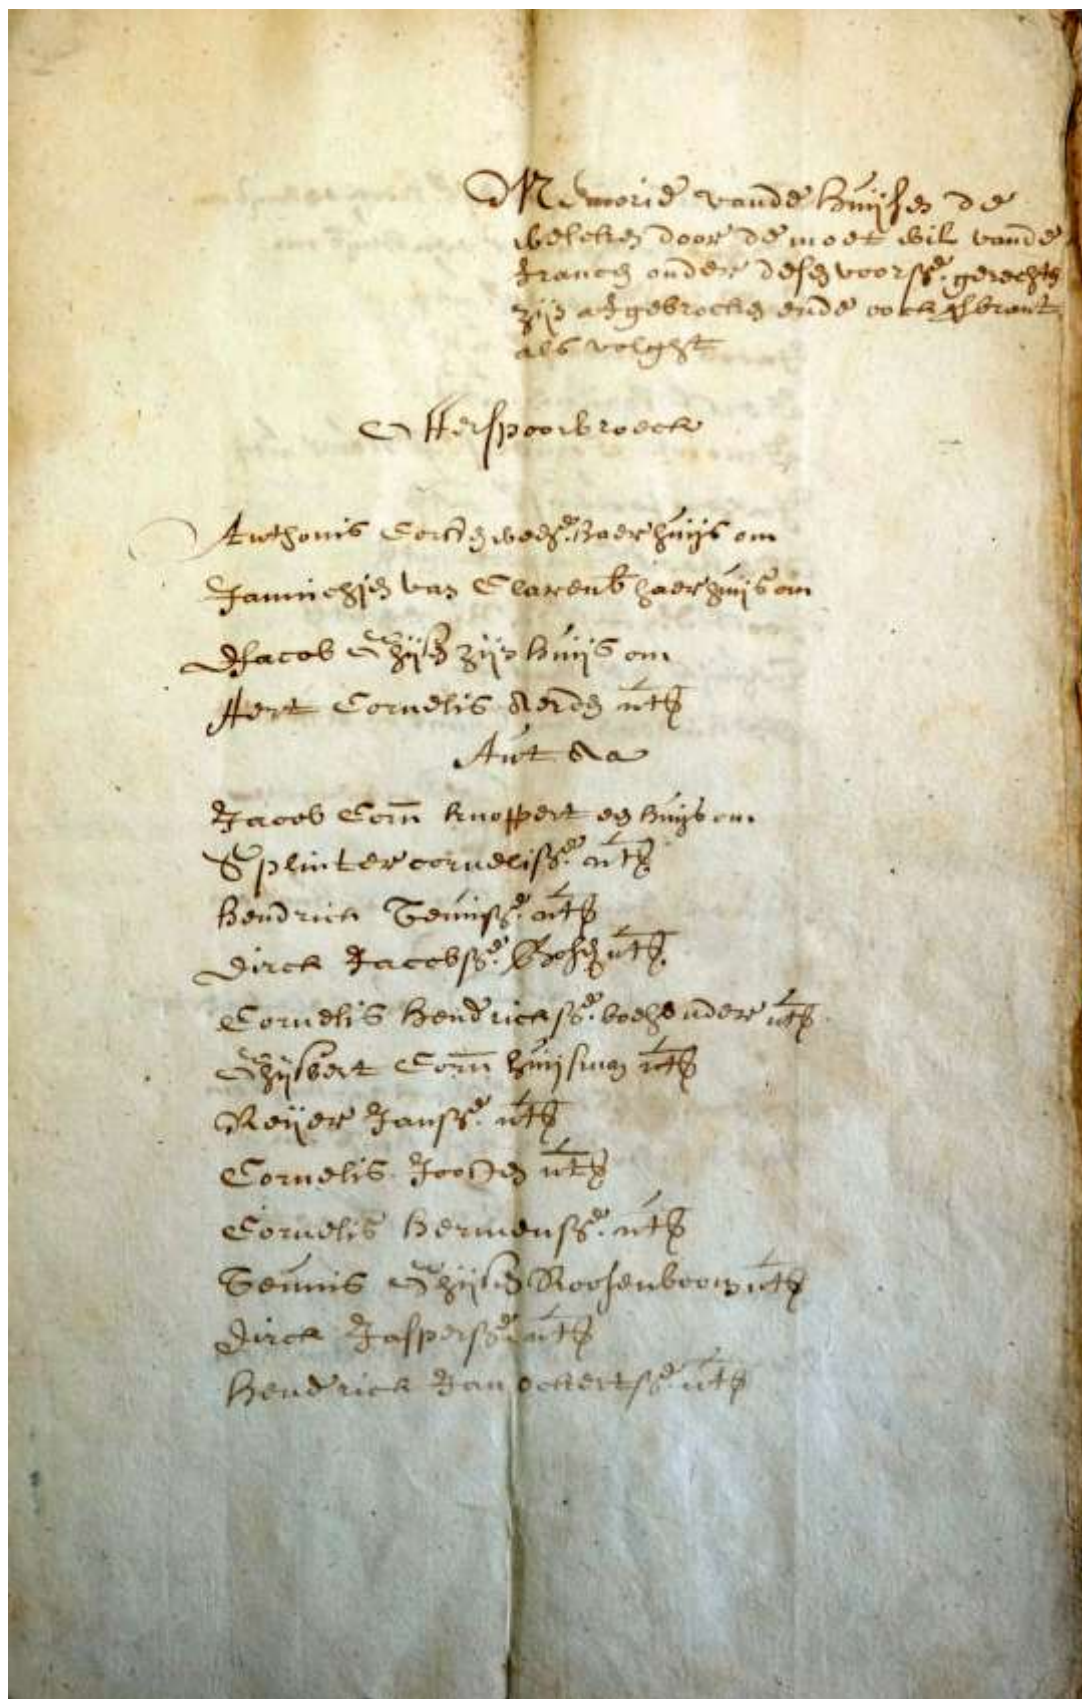 Memorie vande huijsen de
welcken door de moet wil vande
francen onder desen voorsse. gerechten
zijn afgebrocken ende oock
als volght
Otterspoorbroeck
Anthonis huijs om
Jannichjen van Clarenb haer huijs om
Jacob Ghijsen zijn huijs om
Aert Cornelis Aerden uts
Aut Aa
Jacob Corn knoppert en huijs om
Splinter cornelisse. uts
hendrick Teunisse. uts
Dirck Jacobsse. uts
Cornelis hendricksse. uts
Ghijsbert Corn huijsman uts
Reijer Jansse. uts
Cornelis Joosten uts
Cornelis hermensse. uts
Teunis Ghijsen Roosenboom uts
Dirck Jaspersse. uts
hendrick Jan ockertsse. uts